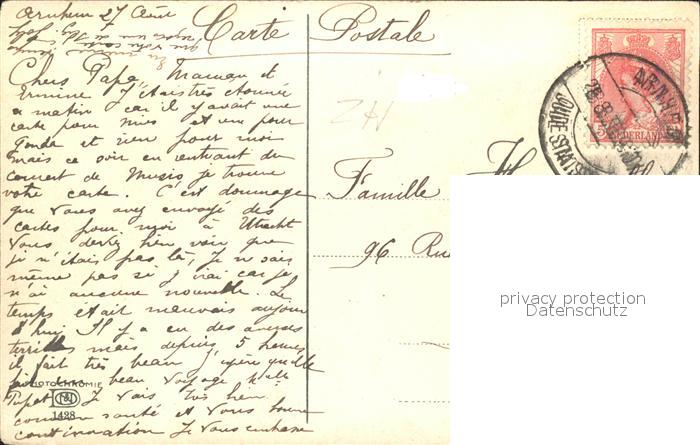 Arnhem 27 Août
Carte Postale
Chers Papa, Maman et
Ermine J'étais très étonnée
a matin car il y avait une
carte pour Mies et une pour
Gonda et rien pour moi
mais ce soir en rentrant du
concert de Musis je trouve
votre carte. C'est dommage
que vous avez envoyé des
cartes pour moi à Utrecht
vous devez bien voir que
je n'étais pas là, je ne sais
même pas si j'irai car je
n'ai aucune nouvelle. Le
temps était mauvais aujour
d'hui Il y a eu des averses
terribles mais depuis 5 heures
il fait très beau j'espère qu'elle
beau voyage
Je vais très bien
santé et vous
continuation Je vous embrasse
PHOTOCHROMIE
1428
Famille H
96 Ru
ZH
NEDERLAND
ARNHEM
privacy protection
Datenschutz